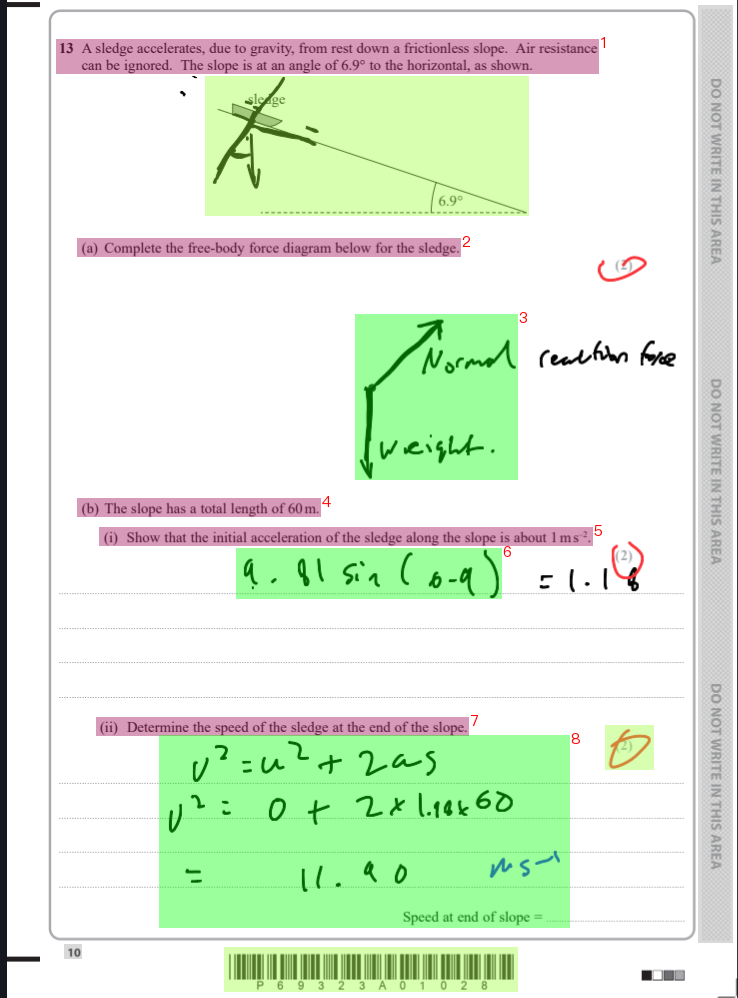 13 A sledge accelerates, due to gravity, from rest down a frictionless slope. Air resistance 1
can be ignored. The slope is at an angle of 6.9° to the horizontal, as shown.
sledge
6.9°
(a) Complete the free-body force diagram below for the sledge. 2
(2)
3
Normal reaction force
Weight.
(b) The slope has a total length of 60 m. 4
(i) Show that the initial acceleration of the sledge along the slope is about 1 m s⁻². 5
(2)
6
9.81 sin (6.9) = 1.18
(ii) Determine the speed of the sledge at the end of the slope. 7
8
(2)
v² = u² + 2as
v² = 0 + 2 × 1.18 × 60
= 11.90 ms⁻¹
Speed at end of slope =
10
P 6 9 3 2 3 A 0 1 0 2 8
DO NOT WRITE IN THIS AREA
DO NOT WRITE IN THIS AREA
DO NOT WRITE IN THIS AREA